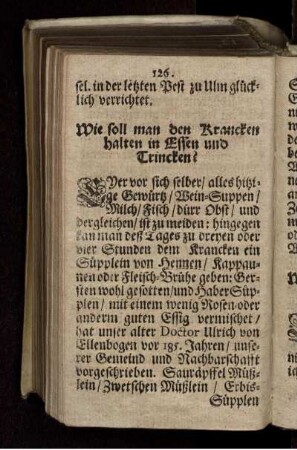 126.
sel. in der letzten Pest zu Ulm glück-
lich verrichtet.
Wie soll man den Krancken
halten in Essen und
Trincken?
EYer vor sich selber / alles hitzi-
ge Gewürtz / Wein-Suppen /
Milch / Fisch / dürr Obst / und
dergleichen / ist zu meiden: hingegen
kan man deß Tages zu dreyen oder
vier Stunden dem Krancken ein
Süpplein von Hennen / Kappau-
nen oder Fleisch-Brühe geben: Ger-
sten wohl gesotten / und Haber Süp-
plen / mit einem wenig Rosen oder
anderm guten Essig vermischet /
hat unser alter Doctor Ulrich von
Ellenbogen vor 185. Jahren / unse-
rer Gemeind und Nachbarschafft
vorgeschrieben. Sauräpffel Müß-
lein / Zwetschen Müßlein / Erbis-
Süpplen